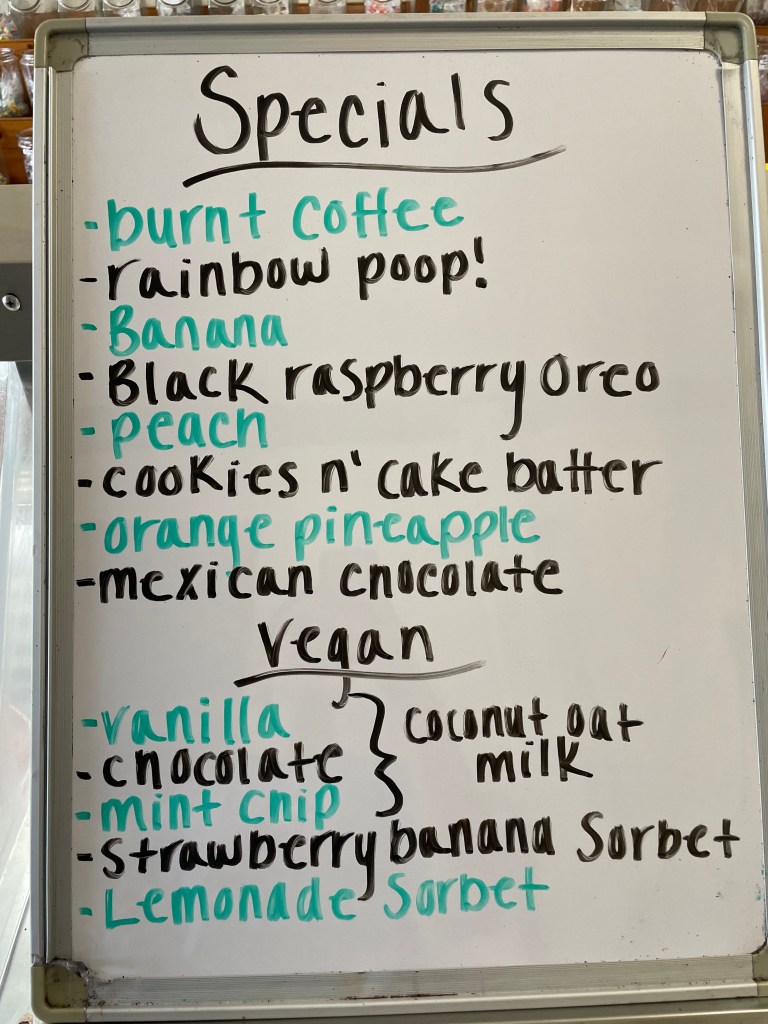 Specials
-burnt coffee
-rainbow poop!
-Banana
-Black raspberry oreo
-peach
-cookies n' cake batter
-orange pineapple
-mexican chocolate
Vegan
-vanilla
-chocolate
-mint chip
coconut oat
milk
-strawberry banana Sorbet
-Lemonade Sorbet